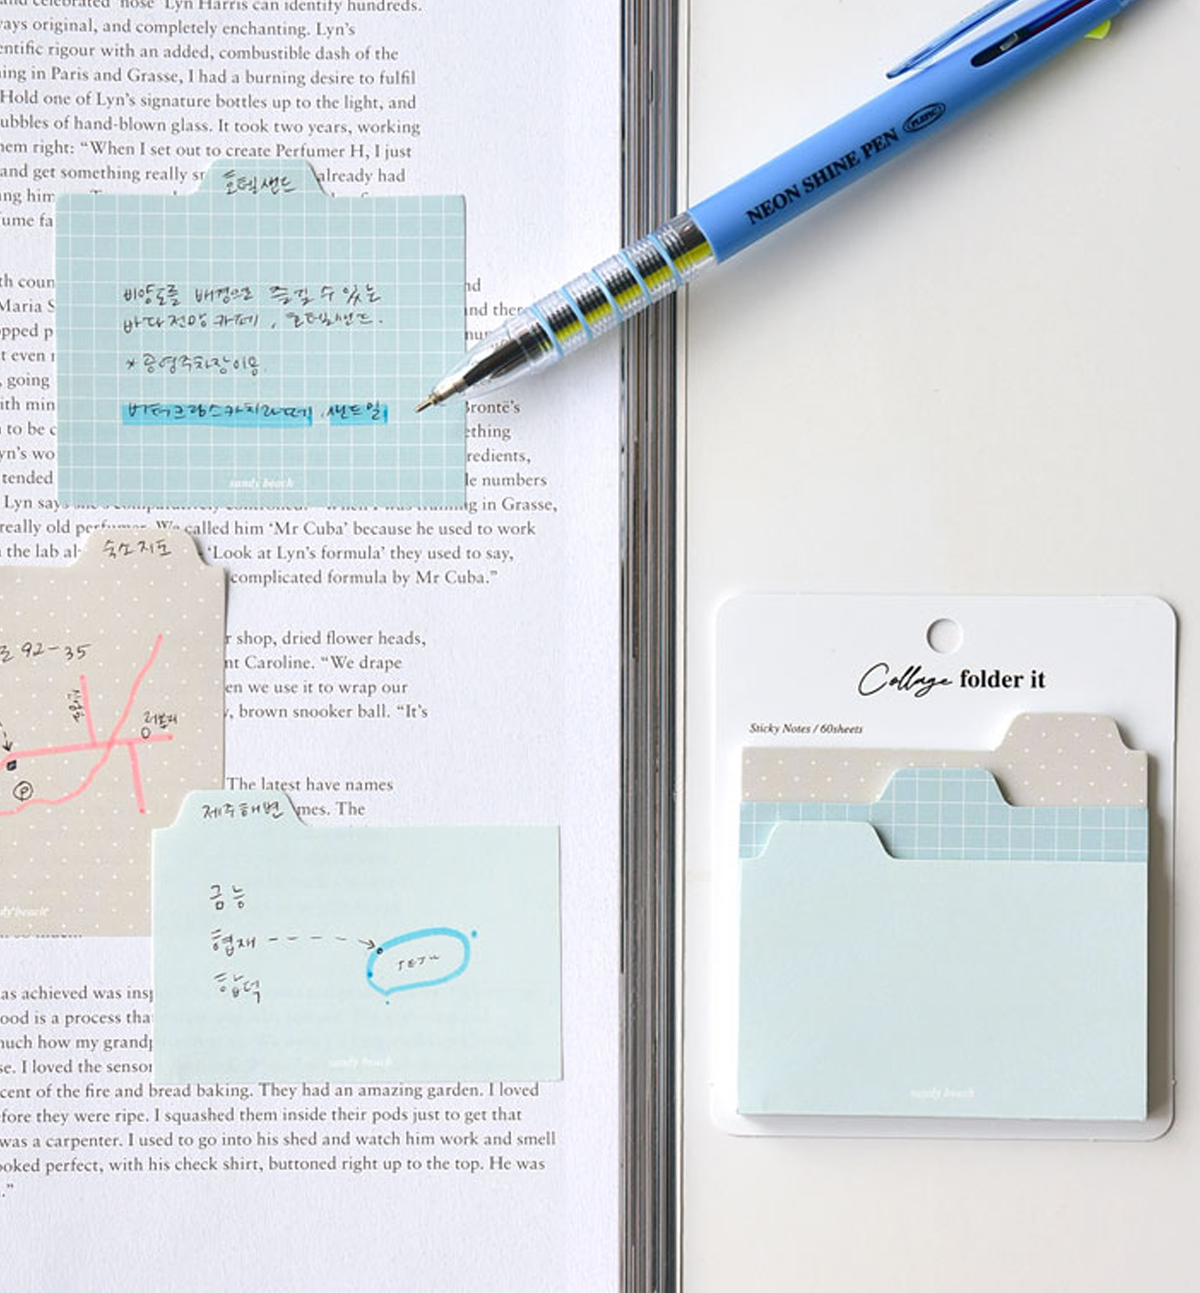 and celebrated 'nose' Lyn Harris can identify hundreds.
ways original, and completely enchanting. Lyn's
entific rigour with an added, combustible dash of the
ing in Paris and Grasse, I had a burning desire to fulfil
Hold one of Lyn's signature bottles up to the light, and
ubbles of hand-blown glass. It took two years, working
hem right: "When I set out to create Perfumer H, I just
and get something really already had
ing him
ume fa
th coun
Maria S and
opped p and ther
t even
, going
ith min Brontë's
n to be c ething
yn's wo redients,
tended le numbers
Lyn says training in Grasse,
really old perfumer. We called him 'Mr Cuba' because he used to work
the lab al 'Look at Lyn's formula' they used to say,
complicated formula by Mr Cuba."
r shop, dried flower heads,
nt Caroline. "We drape
en we use it to wrap our
, brown snooker ball. "It's
The latest have names
mes. The
as achieved was insp
ood is a process tha
much how my grandp
se. I loved the sensor
cent of the fire and bread baking. They had an amazing garden. I loved
fore they were ripe. I squashed them inside their pods just to get that
was a carpenter. I used to go into his shed and watch him work and smell
ooked perfect, with his check shirt, buttoned right up to the top. He was
."
호텔샌드
비양도를 배경으로 즐길 수 있는
바다전망 카페, 호텔샌드.
* 공영주차장이용.
버터크림스카치라떼, 샌드밀
sandy beach
숙소지도
로 92-35
P
sandy beach
제주해변
금능
협재
함덕
JEJU
sandy beach
NEON SHINE PEN
Collage folder it
Sticky Notes / 60sheets
sandy beach